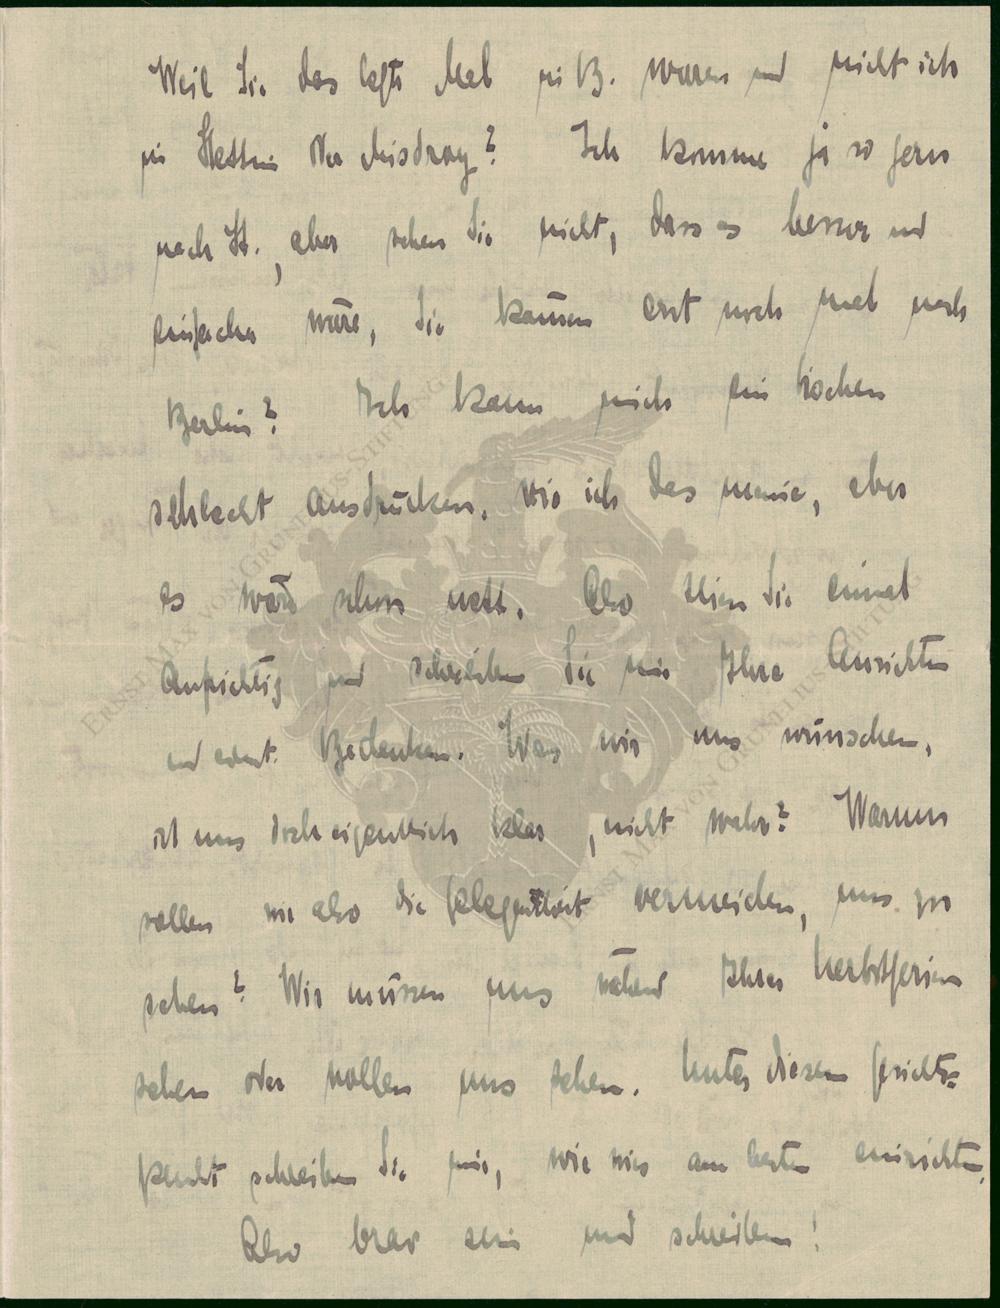 Weil Sie das letzte Mal in B. waren und nicht ich
in Stettin oder Misdroy? Ich komme ja so gern
nach St., aber sehen Sie nicht, dass es besser und
einfacher wäre, Sie kämen erst noch mal nach
Berlin? Ich kann mich ein bischen
schlecht ausdrücken, wie ich das meine, aber
es wär schon nett. Also seien Sie einmal
aufrichtig und schreiben Sie mir Ihre Ansichten
und event. Bedenken. Was wir uns wünschen,
ist uns doch eigentlich klar, nicht wahr? Warum
sollen wir also die Gelegenheit vermeiden, uns zu
sehen? Wir müssen uns währnd Ihrer Herbstferien
sehen oder wollen uns sehen. Unter diesem Gesichts=
punkt schreiben Sie mir, wie wirs am besten einrichten.
Also brav sein und schreiben!
ERNST MAX VON GRUNELIUS-STIFTUNG
ERNST MAX VON GRUNELIUS-STIFTUNG